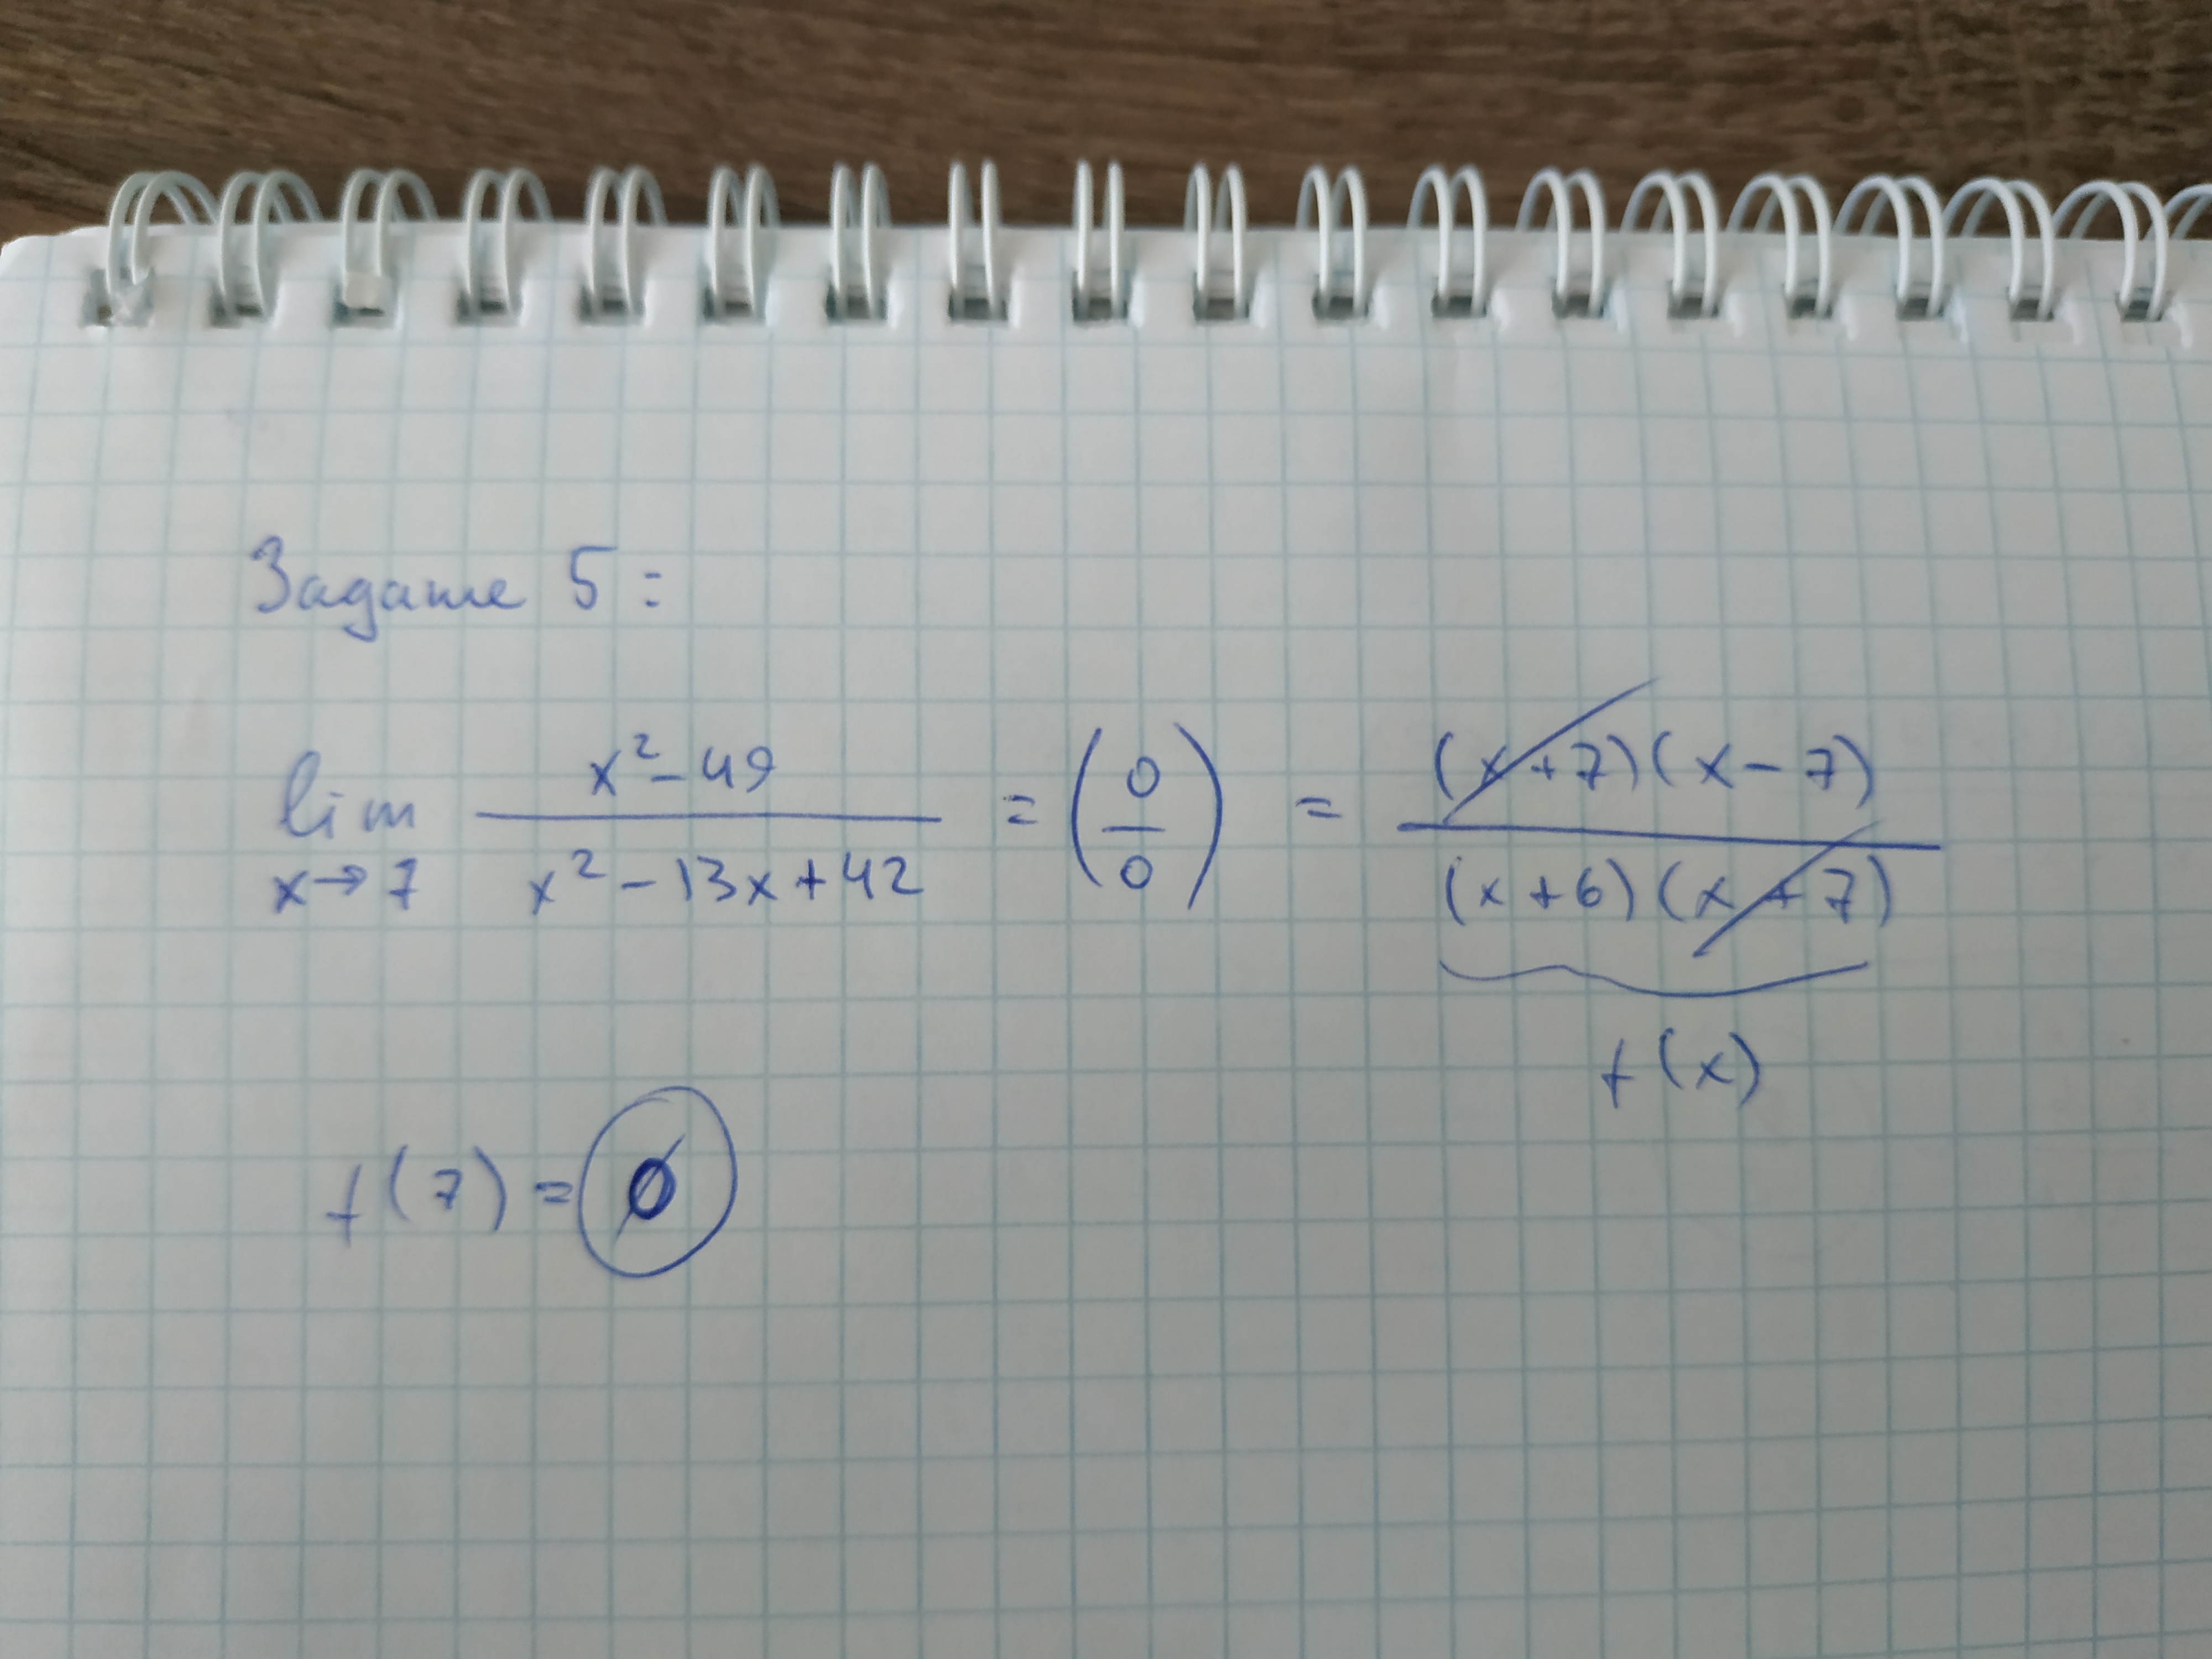 Задание 5:
lim x→7 (x² - 49)/(x² - 13x + 42) = (0/0) = ((x+7)(x-7))/((x+6)(x+7))
f(x)
f(7) = 0